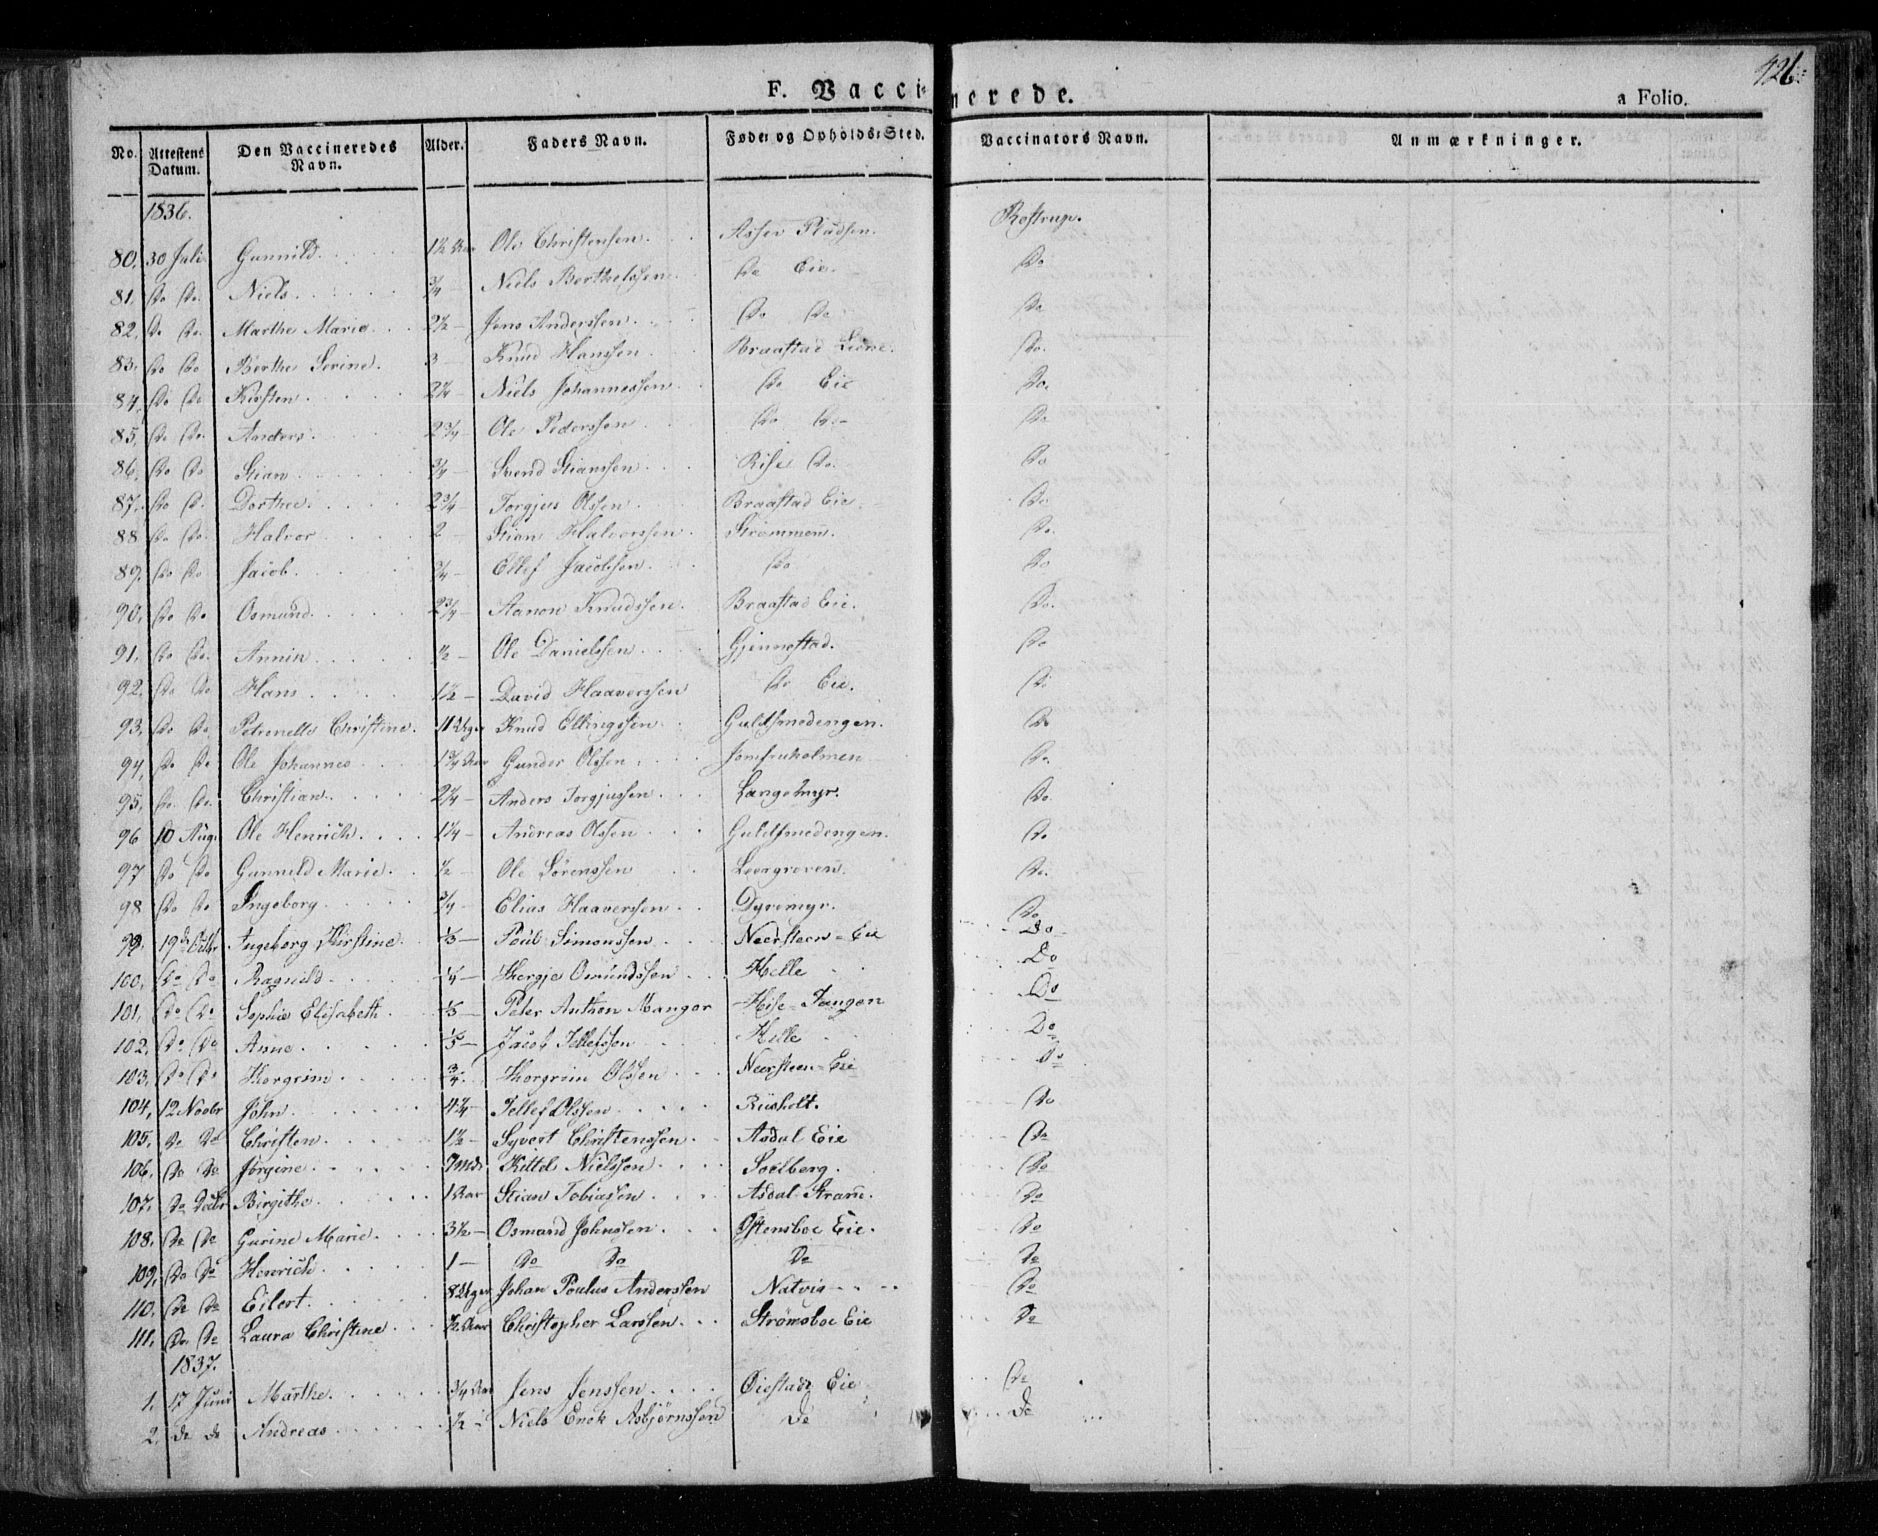 426.
F. Vaccinerede.
a Folio.
No. Attestens Datum. Den Vaccineredes Navn. Alder. Faders Navn. Føde- og Opholds-Sted. Vaccinators Navn. Anmærkninger.
1836.
80. 30 Juli Gunnild. 1½ Aar Ole Christensen. Asser Pladsen. Rostrup.
81. Do Do. Niels. ¾ — Niels Berthelssen Do Eie. Do
82. Do Do. Marthe Marie 2½ — Jens Anderssen. Do Do Do
83. Do Do Berthe Serine. 3 Knud Hanssen. Braastad Do.
84. Do Do Kirsten. 2¼ — Niels Johannessen Do Eie Do.
85. Do Do. Anders. 2¾ — Ole Pederssen Do Do Do
86. Do Do Stian ¾ — Svend Stianssen Rise Do. Do
87. Do D. Dorthee. 2¾ — Torgjus Olssen Braastad Eie. Do.
88 Do Do. Halvor 2 Stian Halvorssen. Strømmen. Do.
89. Do Do Jacob. ¾ — Ellef Jacobssen. Do Do
90. Do Do Osmund. 2¾ — Aanon Knudssen. Braastad Eie. Do.
91. Do Do. Annin ½ — Ole Danielssen Gjennestad. Do
92. Do Do Hans 1½ — David Haaverssen Do Eie. Do
93. Do Do Petronelle Christine. 11 Uger Knud Ellingssen. Guldsmedengen. Do
94. Do Do Ole Johannes 1¾ Aar Gunder Olssen Jomfruholmen Do.
95. Do. Do. Christian. 2¼ — Anders Torgjussen Langemyr. Do.
96 10 Aug. Ole Henrich. 1¼ — Andreas Olssen Guldsmedengen. Do
97 Do Do Gunnild Marie. ½ — Ole Sørenssen Do.
98 Do Do Ingeborg ¾ — Elias Haaverssen Dyremyr. Do
99. 19de Octbr Ingeborg Kirstine. ⅓ — Poul Simonssen. Neersteen = Eie Do
100. Do Do Ragnild ¼ — Thorgje Osmundssen Helle Do
101. Do Do Sophie Elisabeth ⅓ — Peter Anthon Mangor Hise = Tangen Do
102. Do Do Anne. ⅓ — Jacob Tellefssen Helle Do
103. Do Do Thorgrim ¾. Thorgrim Olssen Neersteen = Eie Do
104. 12 Novbr John. 4¼ — Tellef Olssen Riisholt. Do
105. Do Do Christen. 1½ — Syvert Christenssen. Asdal Eie Do
106. Do Do Jørgine 7 Mdr Kittel Nielssen Soelberg. Do
107. Do Decbr Birgithe. 1 Aar Stian Tobiassen Asdal-Stram. Do
108. Do Do Gurine Marie. 3½ — Osmund Johnssen. Østensboe Eie. Do
109. Do Do Henrich. 1 — Do Do Do Do
110. Do Do Eilert. 8 Uger Johan Poulus Anderssen Natvig Do
111. Do Do Laura Christine ½ Aar Christopher Larssen. Strømsboe Eie Do
1837.
1. 17 Juni Marthe. ¾ Aar Jens Jenssen Øiestad Eie Do
2. Do Do Andreas ½ — Niels Enok Asbjørnssen Do Do